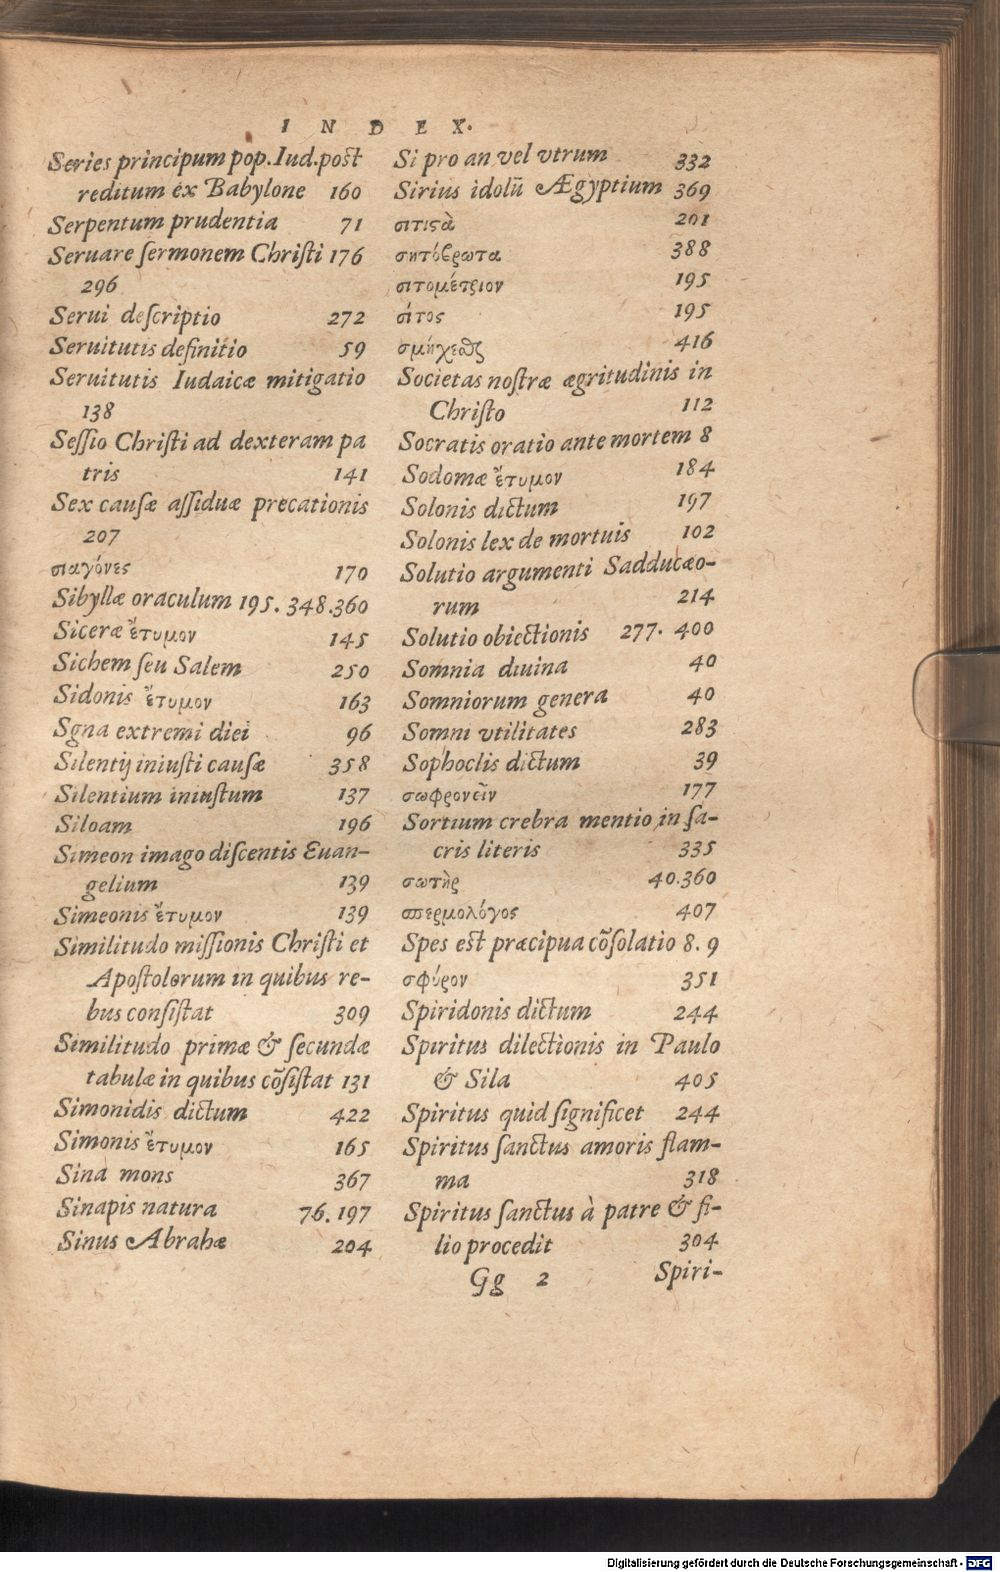 INDEX.
Series principum pop. Iud. post
reditum ex Babylone 160
Serpentum prudentia 71
Seruare sermonem Christi 176
296
Serui descriptio 272
Seruitutis definitio 59
Seruitutis Iudaicæ mitigatio
138
Sessio Christi ad dexteram pa
tris 141
Sex causæ assiduæ precationis
207
σιαγόνες 170
Sibyllæ oraculum 195. 348. 360
Siceræ ἔτυμον 145
Sichem seu Salem 250
Sidonis ἔτυμον 163
Sgna extremi diei 96
Silentij iniusti causæ 358
Silentium iniustum 137
Siloam 196
Simeon imago discentis Euan-
gelium 139
Simeonis ἔτυμον 139
Similitudo missionis Christi et
Apostolorum in quibus re-
bus consistat 309
Similitudo primæ & secundæ
tabulæ in quibus cõsistat 131
Simonidis dictum 422
Simonis ἔτυμον 165
Sina mons 367
Sinapis natura 76. 197
Sinus Abrahæ 204
Si pro an vel vtrum 332
Sirius idolũ Ægyptium 369
σιτιςὰ 201
σητόβρωτα 388
σιτομέτριον 195
σῖτος 195
σμήχεσθ 416
Societas nostræ ægritudinis in
Christo 112
Socratis oratio ante mortem 8
Sodomæ ἔτυμον 184
Solonis dictum 197
Solonis lex de mortuis 102
Solutio argumenti Sadducæo-
rum 214
Solutio obiectionis 277. 400
Somnia diuina 40
Somniorum genera 40
Somni vtilitates 283
Sophoclis dictum 39
σωφρονεῖν 177
Sortium crebra mentio in sa-
cris literis 335
σωτὴρ 40. 360
σπερμολόγος 407
Spes est præcipua cõsolatio 8. 9
σφύρον 351
Spiridonis dictum 244
Spiritus dilectionis in Paulo
& Sila 405
Spiritus quid significet 244
Spiritus sanctus amoris flam-
ma 318
Spiritus sanctus à patre & fi-
lio procedit 304
Gg 2 Spiri-
Digitalisierung gefördert durch die Deutsche Forschungsgemeinschaft - DFG